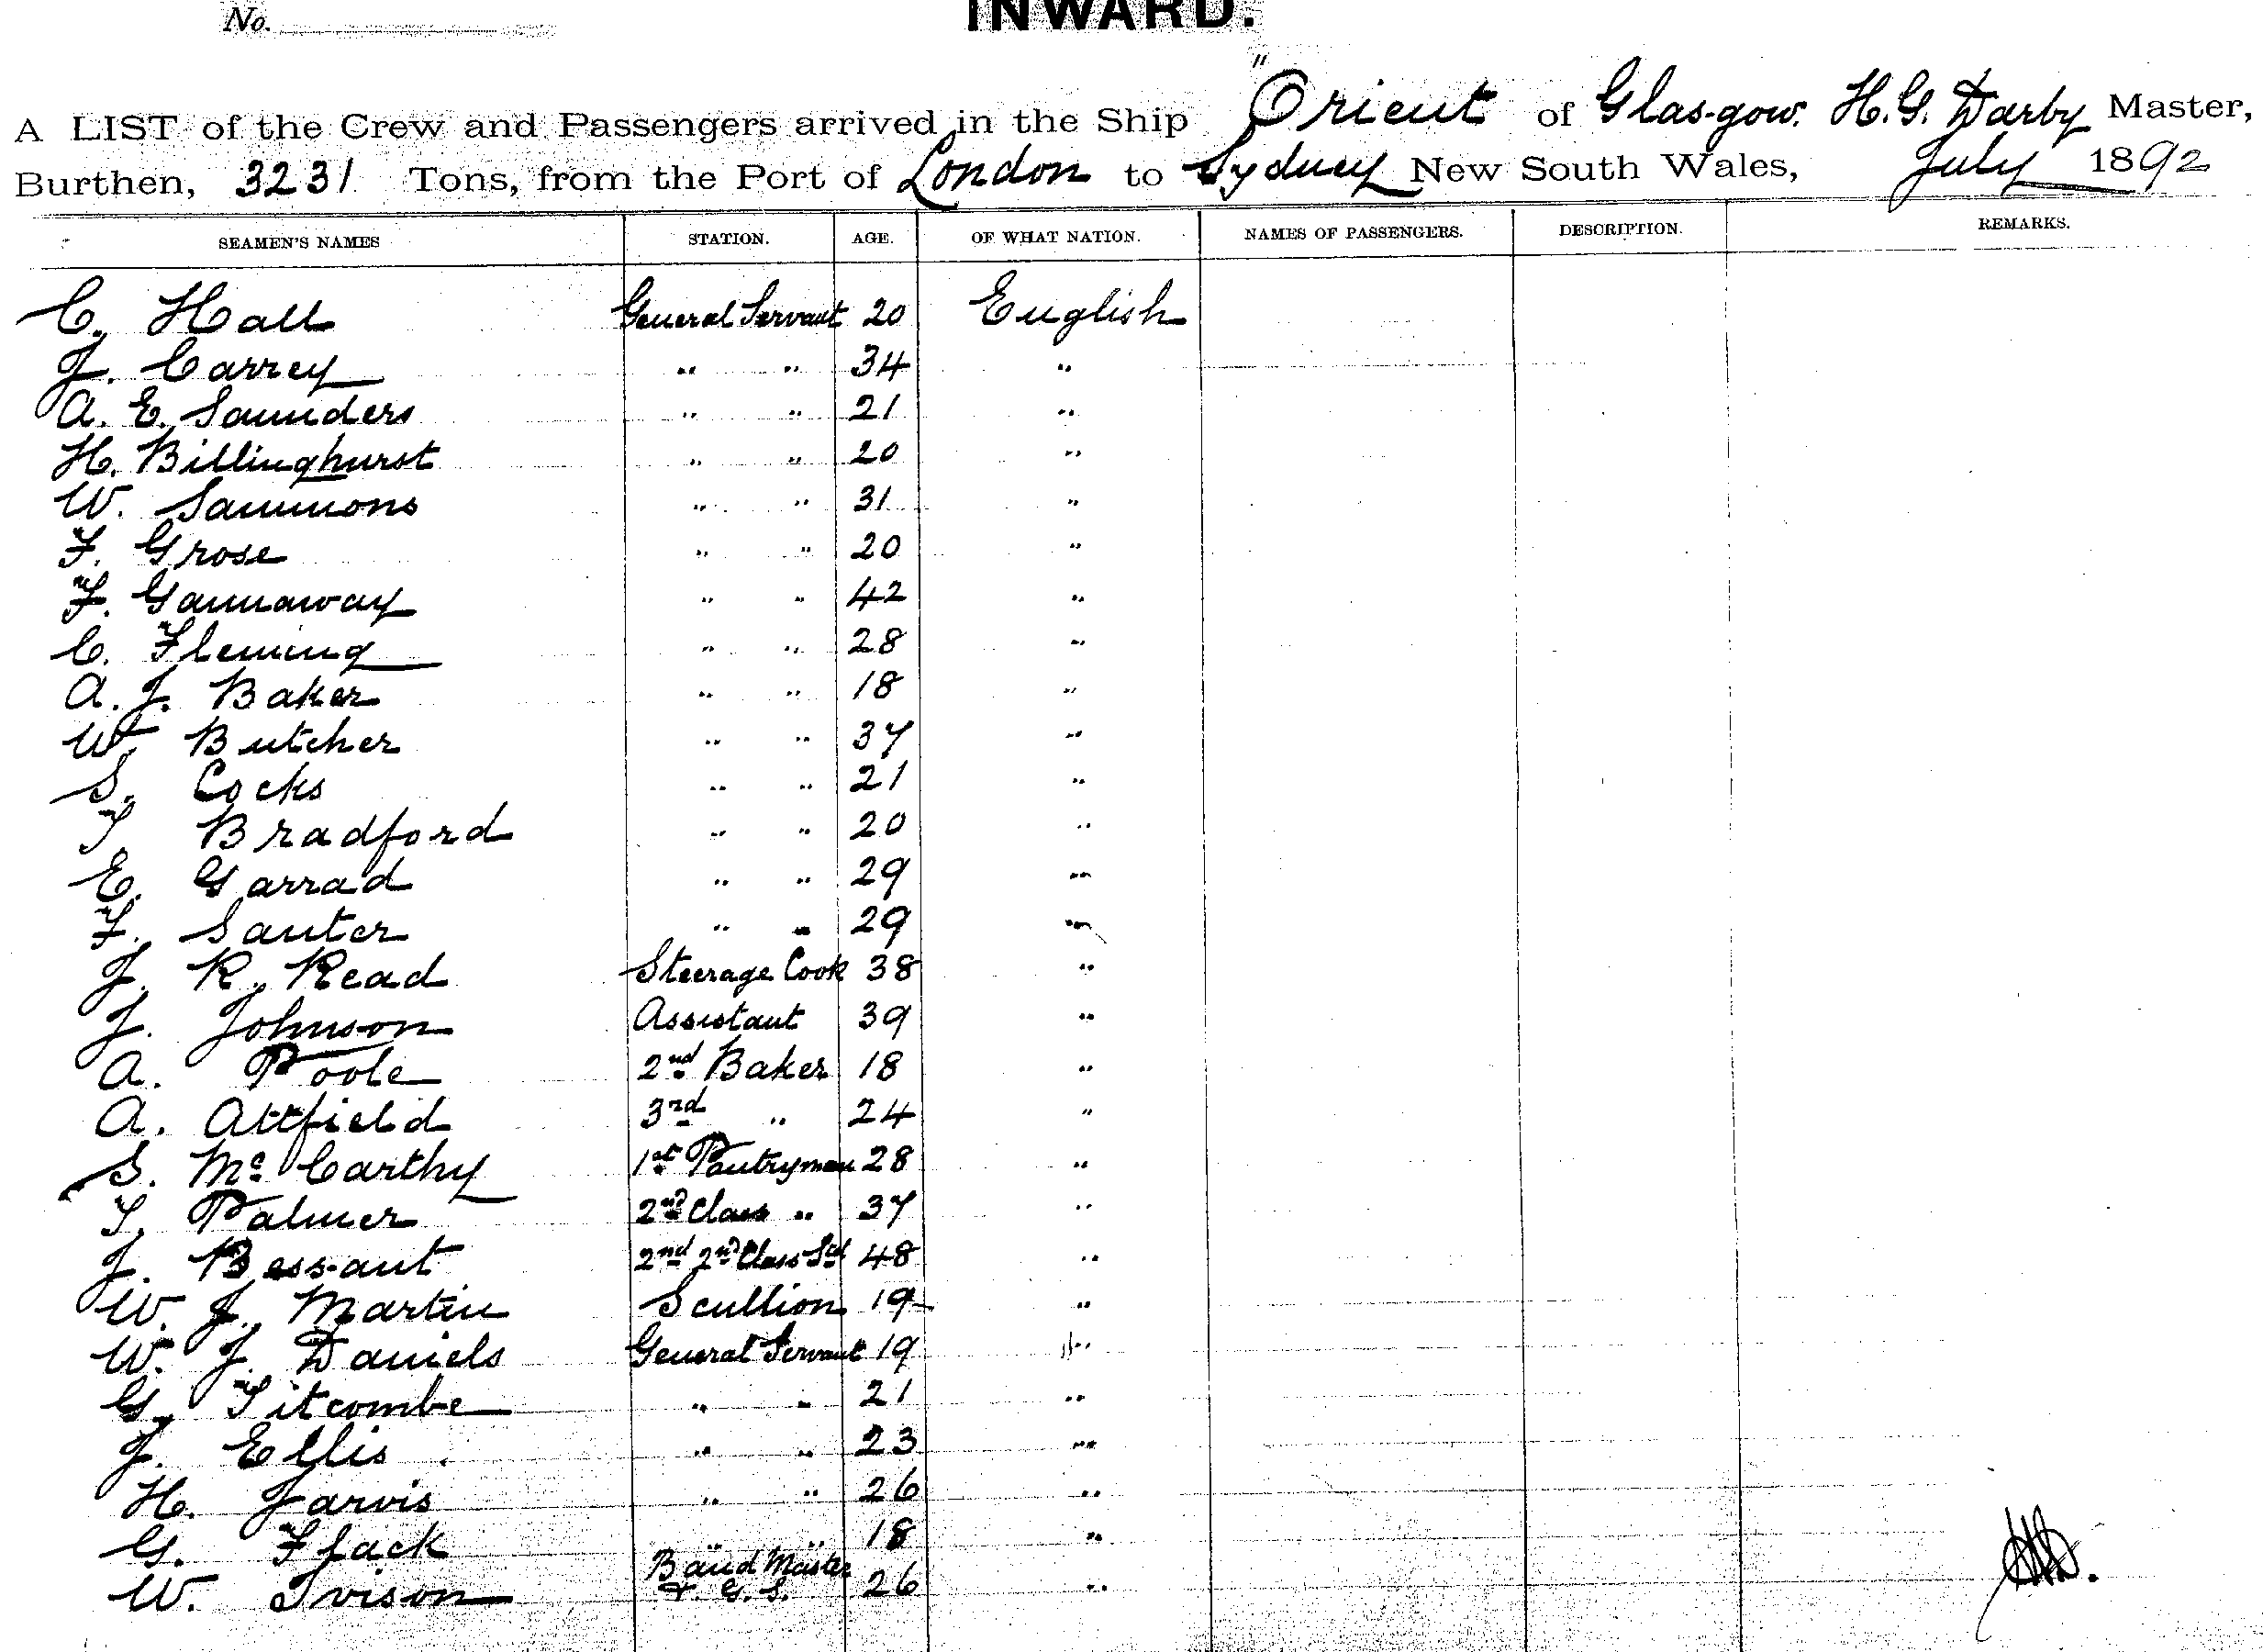 No.
INWARD.
A LIST of the Crew and Passengers arrived in the Ship "Orient of Glasgow. H. G. Darby Master,
Burthen, 3231 Tons, from the Port of London to Sydney New South Wales, July 1892
SEAMEN'S NAMES STATION. AGE. OF WHAT NATION. NAMES OF PASSENGERS. DESCRIPTION. REMARKS.
C. Hall General Servant 20 English
J. Carrey " " 34 "
A. E. Saunders " " 21 "
H. Billinghurst " " 20 "
W. Sammons " " 31 "
F. Grose " " 20 "
F. Gannaway " " 42 "
C. Fleming " " 28 "
A. J. Baker " " 18 "
W. Butcher " " 37 "
S. Cocks " " 21 "
T Bradford " " 20 "
E. Garrad " " 29 "
F. Santer " " 29 "
J. R. Read Steerage Cook 38 "
J. Johnson Assistant 39 "
A. Poole 2nd Baker 18 "
A. Attfield 3rd " 24 "
S. McCarthy 1st Pantryman 28 "
T. Palmer 2nd Class " 37 "
J. Bessant 2nd 2nd Class Std 48 "
W. J. Martin Scullion 19 "
W. J. Daniels General Servant 19 "
G. Titcombe " " 21 "
J. Ellis " " 23 "
H. Jarvis " " 26 "
G. Flack " " 18 "
W. Ivison Band Master & G. S. 26 "